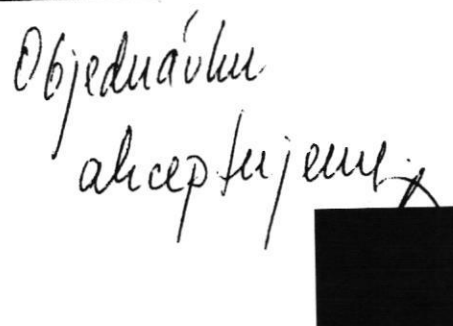 Objednávku
akceptujeme.